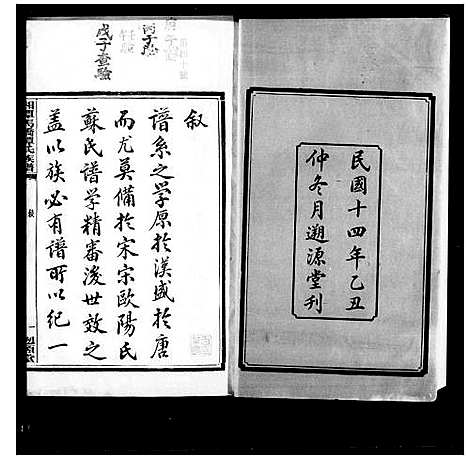 民國十四年乙丑
仲冬月遡源堂刊
叙
譜系之學原於漢盛於唐
而尤莫備於宋宗歐陽氏
蘇氏譜學精審後世效之
蓋以族必有譜所以紀一
戊子查驗
丙子
叙
一